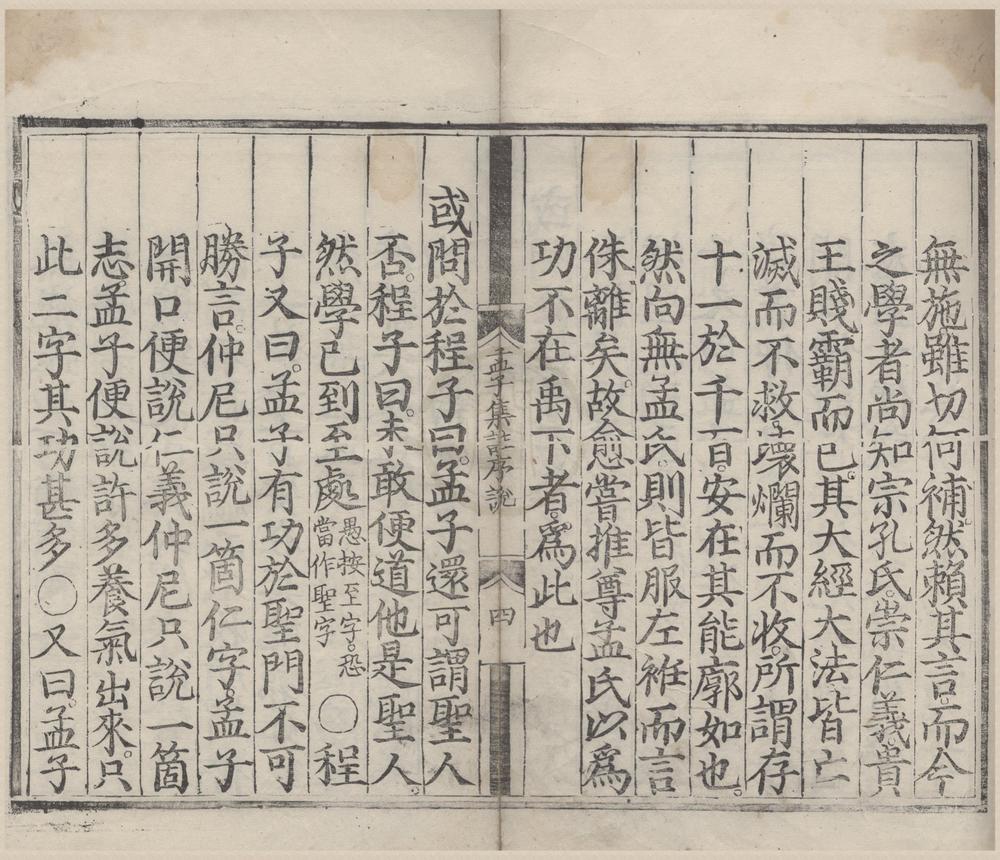 無施雖切何補。然賴其言。而今
之學者尚知宗孔氏。崇仁義貴
王賤霸而已。其大經大法皆亡
滅而不救。壞爛而不收。所謂存
十一於千百。安在其能廓如也。
然向無孟氏。則皆服左袵而言
侏離矣。故愈嘗推尊孟氏以爲
功不在禹下者。爲此也
孟子集註序說
四
或問於程子曰。孟子還可謂聖人
否。程子曰。未敢便道他是聖人。
然學已到至處愚按至字。恐當作聖字○程
子又曰。孟子有功於聖門不可
勝言。仲尼只說一箇仁字。孟子
開口便說仁義仲尼只說一箇
志孟子便說許多養氣出來。只
此二字其功甚多○又曰。孟子